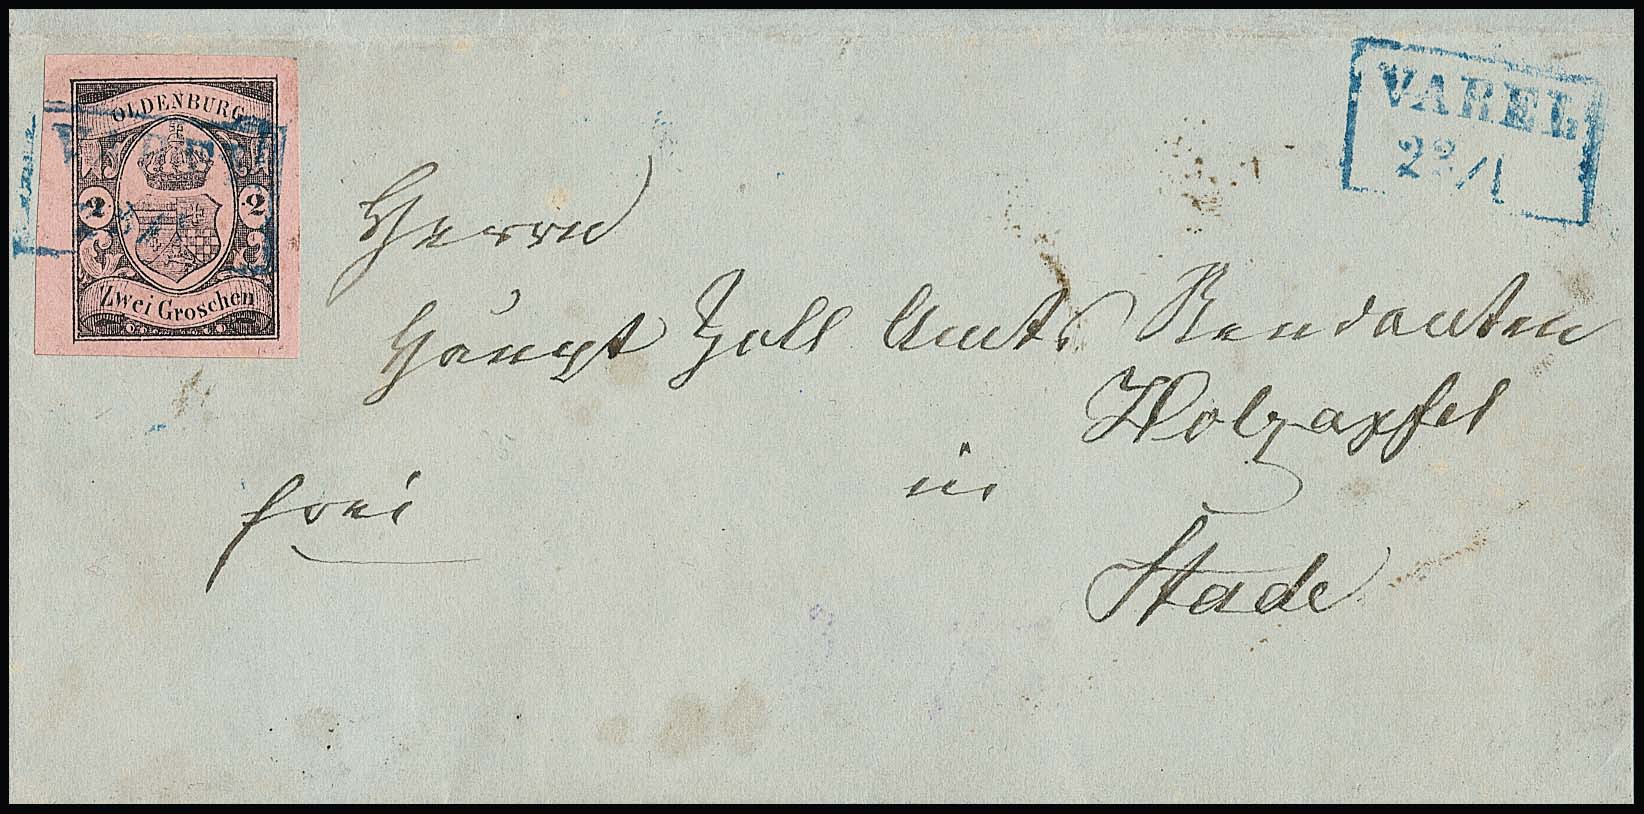 OLDENBURG
2 2
Zwei Groschen
VAREL
22/1
Herrn
Haupt Zoll Amts Rendanten
Holzapfel
in
Stade
frei